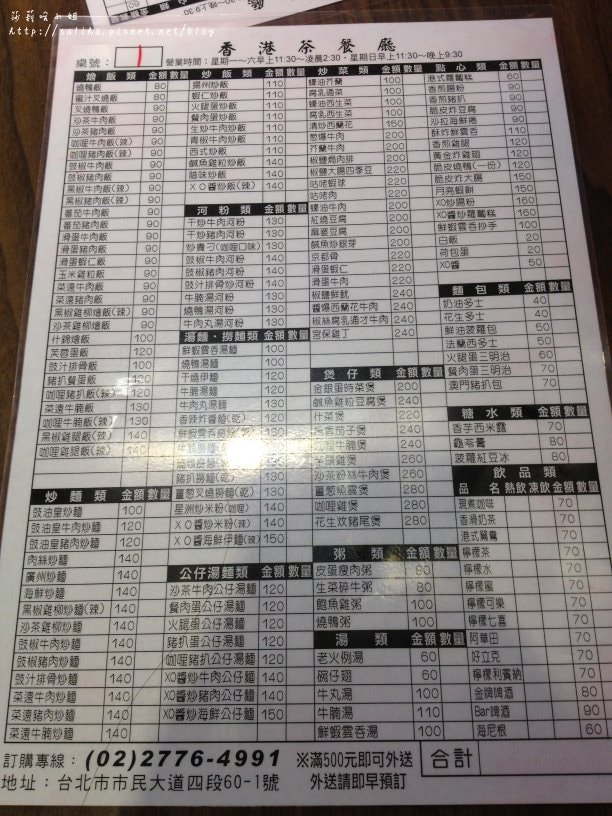 莎莉哈小姐
http://saliha.pixnet.net/blog
桌號：1
香港茶餐廳
營業時間：星期一～六早上11:30～凌晨2:30，星期日早上11:30～晚上9:30
燴飯類 金額 數量
燒鴨飯 80
蜜汁叉燒飯 80
叉燒鴨飯 90
沙茶牛肉飯 90
沙茶豬肉飯 90
咖哩牛肉飯(辣) 90
咖哩豬肉飯(辣) 90
豉椒牛肉飯 90
豉椒豬肉飯 90
黑椒牛肉飯(辣) 90
黑椒豬肉飯(辣) 90
蕃茄牛肉飯 90
蕃茄豬肉飯 90
滑蛋牛肉飯 90
滑蛋豬肉飯 90
滑蛋蝦仁飯 90
玉米雞粒飯 90
菜遠牛肉飯 90
菜遠豬肉飯 90
黑椒雞柳燴飯(辣) 90
沙茶雞柳燴飯 90
什錦燴飯 100
芙蓉蛋飯 120
豉汁排骨飯 100
豬扒餐蛋飯 120
咖哩豬扒飯(辣) 120
菜遠牛腩飯 130
咖哩牛腩飯(辣) 130
黑椒雞腿飯(辣) 130
咖哩雞腿飯(辣) 130
炒麵類 金額 數量
豉油皇炒麵 100
豉油皇牛肉炒麵 120
豉油皇豬肉炒麵 120
肉絲炒麵 140
廣州炒麵 140
海鮮炒麵 140
黑椒雞柳炒麵(辣) 140
沙茶雞柳炒麵 140
豉椒牛肉炒麵 140
豉椒豬肉炒麵 140
豉汁排骨炒麵 140
菜遠牛肉炒麵 140
菜遠豬肉炒麵 140
菜遠牛腩炒麵 140
炒飯類 金額 數量
揚州炒飯 110
蝦仁炒飯 110
火腿蛋炒飯 110
餐肉蛋炒飯 110
生炒牛肉炒飯 110
青椒牛肉炒飯 110
西式炒飯 110
鹹魚雞粒炒飯 140
腊味炒飯 140
ＸＯ醬炒飯(辣) 140
河粉類 金額 數量
干炒牛肉河粉 130
干炒豬肉河粉 130
炒貴刁(咖哩口味) 130
豉椒牛肉河粉 130
豉椒豬肉河粉 130
豉汁排骨炒河粉 130
牛腩湯河粉 130
燒鴨湯河粉 130
牛肉丸湯河粉 130
湯麵・撈麵類 金額 數量
鮮蝦雲吞湯麵 110
燒鴨湯麵 120
干燒伊麵 120
牛腩湯麵 120
牛肉丸湯麵 130
香辣炸醬麵(乾) 120
鮮蝦雲吞撈麵(乾) 130
牛腩撈麵(乾)
豬扒撈麵(乾) 130
薑蔥叉燒撈麵(乾) 130
星洲炒米粉(辣) 140
ＸＯ醬炒米粉(辣) 140
ＸＯ醬海鮮伊麵(辣) 150
公仔湯麵類 金額 數量
沙茶牛肉公仔湯麵 120
餐肉蛋公仔湯麵 120
火腿蛋公仔湯麵 120
豬扒蛋公仔湯麵 120
咖哩豬扒公仔湯麵 120
XO醬炒牛肉公仔麵 140
XO醬炒豬肉公仔麵 140
XO醬炒海鮮公仔麵 150
炒菜類 金額 數量
蠔油芥蘭 100
腐乳通菜 150
蠔油西生菜 100
腐乳西生菜 100
清炒西蘭花 150
蔥爆牛肉 200
芥蘭牛肉 200
椒鹽焗肉排 200
椒鹽大腸四季豆 220
咕咾蝦球 220
咕咾肉 220
蠔油牛肉 200
紅燒豆腐 200
麻婆豆腐 200
鹹魚炒銀芽 200
京都骨 220
滑蛋蝦仁 220
滑蛋牛肉 220
椒鹽鮮魷 240
醬爆西蘭花牛肉 240
椒絲腐乳通才牛肉 240
宮保雞丁 240
煲仔類 金額 數量
金銀蛋時菜煲 200
鹹魚雞粒豆腐煲 200
什菜煲 220
魚香茄子煲 240
咖哩牛腩煲 240
芋頭雞煲 260
沙茶粉絲牛肉煲 260
薑蔥魚雲煲 280
咖哩雞煲 280
花生炆豬尾煲 280
粥類 金額 數量
皮蛋瘦肉粥 80
生菜碎牛粥 80
鮑魚雞粥 100
燒鴨粥 100
湯類 金額 數量
老火例湯 60
碗仔翅 60
牛丸湯 100
牛腩湯 110
鮮蝦雲吞湯 100
點心類 金額 數量
港式蘿蔔糕 60
香煎腸粉 90
香煎豬扒 90
脆皮炸豆腐 90
沙拉海鮮捲 90
酥炸鮮雲吞 110
香煎雞腿 120
黃金炸雞翅 120
脆皮燒鴨(一份) 120
脆皮炸大腸 150
月亮蝦餅 150
XO炒腸粉 160
XO醬炒蘿蔔糕 160
鮮蝦雲吞抄手 100
白飯 20
荷包蛋 20
XO醬 50
麵包類 金額 數量
奶油多士 40
花生多士 40
鮮油菠蘿包 50
法蘭西多士 50
火腿蛋三明治 60
餐肉蛋三明治 70
澳門豬扒包 70
糖水類 金額 數量
香芋西米露 70
龜苓膏 80
菠蘿紅豆冰 80
飲品類
品名 熱飲 凍飲 金額 數量
現煮咖啡 70
香滑奶茶 70
港式鴛鴦 70
檸檬茶 70
檸檬水 70
檸檬蜜 70
檸檬可樂 70
檸檬七喜 70
阿華田 70
好立克 70
檸檬利賓納 70
金牌啤酒 80
Bar啤酒 90
海尼根 60
訂購專線：(02)2776-4991
※滿500元即可外送
外送請即早預訂
合計
地址：台北市市民大道四段60-1號